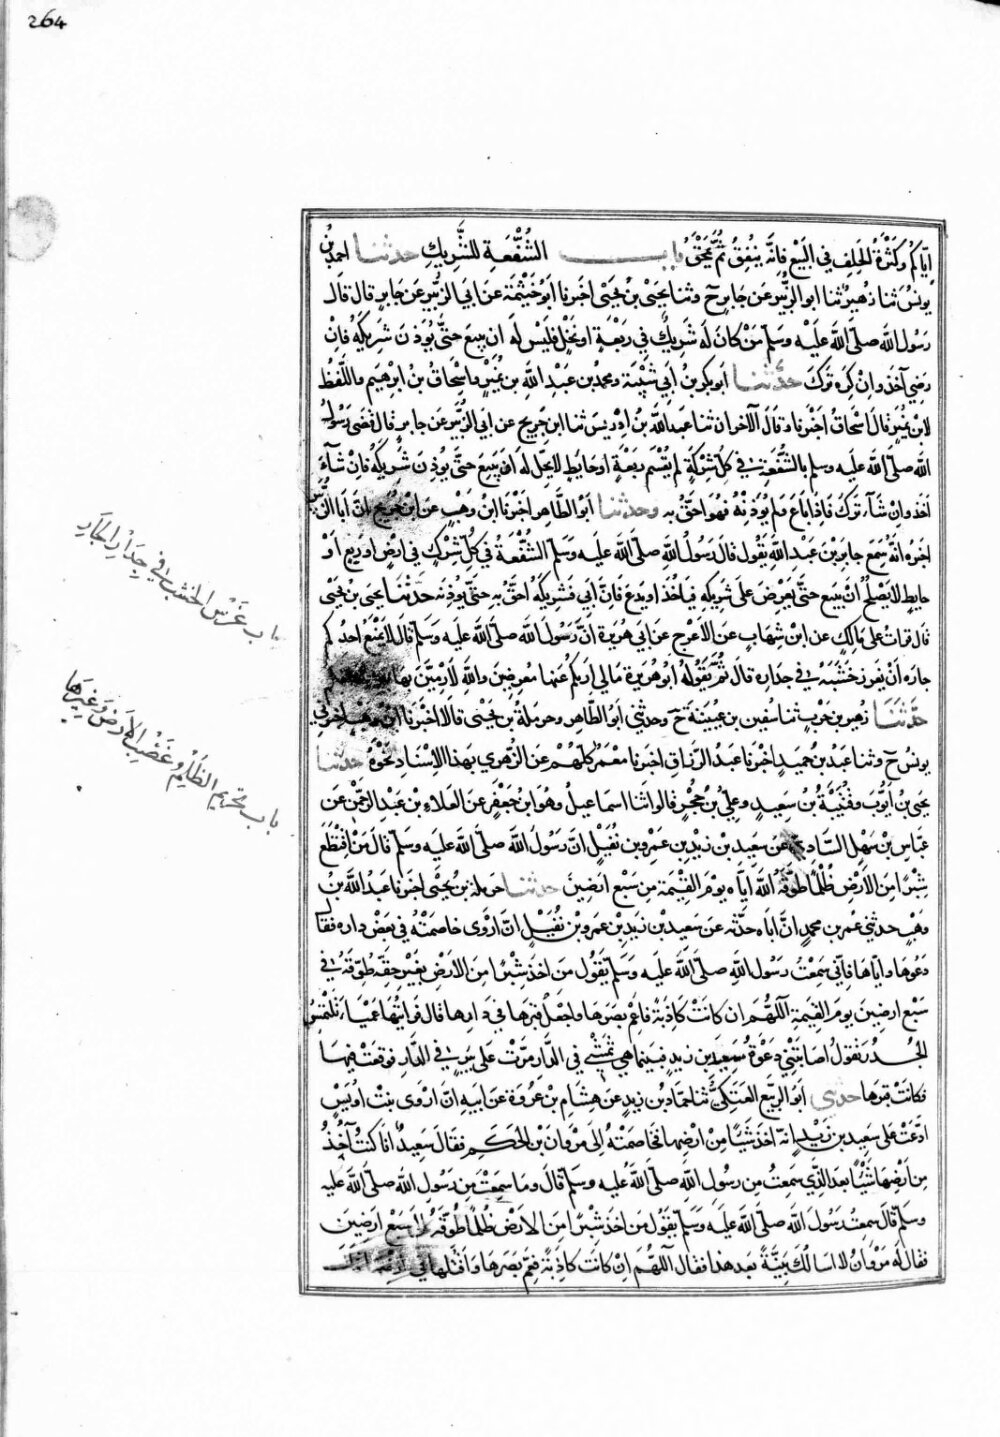 264
اياكم وكثرة الحلف في البيع فانه ينفق ثم يمحق باب الشفعة للشريك حدثنا احمد بن
يونس ثنا زهير ثنا ابو الزبير عن جابر ح وثنا يحيى بن يحيى اخبرنا ابو خيثمة عن ابي الزبير عن جابر قال قال
رسول الله صلى الله عليه وسلم من كان له شريك في ربعة او نخل فليس له ان يبيع حتى يوذن شريكه فان
رضي اخذ وان كره ترك حدثنا ابو بكر بن ابي شيبة ومحمد بن عبد الله بن نمير واسحاق بن ابرهيم واللفظ
لابن نمير قال اسحاق اخبرنا وقال الآخران ثنا عبد الله بن ادريس ثنا ابن جريج عن ابي الزبير عن جابر قال قضى رسول
الله صلى الله عليه وسلم بالشفعة في كل شركة لم تقسم ربعة او حايط لا يحل له ان يبيع حتى يوذن شريكه فان شآء
اخذ وان شآء ترك فاذا باع ولم يوذنه فهو احق به وحدثنا ابو الطاهر اخبرنا ابن وهب عن ابن جريج ان ابا الزبير
اخبره انه سمع جابر بن عبد الله يقول قال رسول الله صلى الله عليه وسلم الشفعة في كل شرك في ارض او ربع او
حايط لا يصلح ان يبيع حتى يعرض على شريكه فياخذ او يدع فان ابى فشريكه احق به حتى يوذنه حدثنا يحيى بن يحيى
قال قرات على مالك عن ابن شهاب عن الاعرج عن ابي هريرة ان رسول الله صلى الله عليه وسلم قال لا يمنع احدكم
جاره ان يغرز خشبة في جداره قال ثم يقول ابو هريرة مالي اراكم عنها معرضين والله لارمين بها
حدثنا زهير بن حرب ثنا سفين بن عيينة ح وحدثني ابو الطاهر وحرملة بن يحيى قالا اخبرنا ابن وهب اخبرني
يونس ح وثنا عبد بن حميد اخبرنا عبد الرزاق اخبرنا معمر كلهم عن الزهري بهذا الاسناد نحوه حدثنا
يحيى بن ايوب وقتيبة بن سعيد وعلي بن حجر قالوا ثنا اسماعيل وهو ابن جعفر عن العلاء بن عبد الرحمن عن
عباس بن سهل الساعدي عن سعيد بن زيد بن عمرو بن نفيل ان رسول الله صلى الله عليه وسلم قال من اقتطع
شبرا من الارض ظلما طوقه الله اياه يوم القيمة من سبع ارضين حدثنا حرملة بن يحيى اخبرنا عبد الله بن
وهب حدثني عمر بن محمد ان اباه حدثه عن سعيد بن زيد بن عمرو بن نفيل ان اروى خاصمته في بعض داره فقال
دعوها واياها فاني سمعت رسول الله صلى الله عليه وسلم يقول من اخذ شبرا من الارض بغير حقه طوقه في
سبع ارضين يوم القيمة اللهم ان كانت كاذبة فاعم بصرها واجعل قبرها في دارها قال فرايتها عمياء تلتمس
الجدر تقول اصابتني دعوة سعيد بن زيد فبينما هي تمشي في الدار مرت على بير في الدار فوقعت فيها
فكانت قبرها حدثني ابو الربيع العتكي ثنا حماد بن زيد عن هشام بن عروة عن ابيه ان اروى بنت اويس
ادعت على سعيد بن زيد انه اخذ شيئا من ارضها فخاصمته الى مروان بن الحكم فقال سعيد انا كنت آخذ
من ارضها شيئا بعد الذي سمعت من رسول الله صلى الله عليه وسلم قال وما سمعت من رسول الله صلى الله عليه
وسلم قال سمعت رسول الله صلى الله عليه وسلم يقول من اخذ شبرا من الارض ظلما طوقه الى سبع ارضين
فقال له مروان لا اسالك بينة بعد هذا فقال اللهم ان كانت كاذبة فعم بصرها واقتلها في
باب غرس الخشب في جدار الجار
باب تحريم الظلم وغصب الارض وغيرها